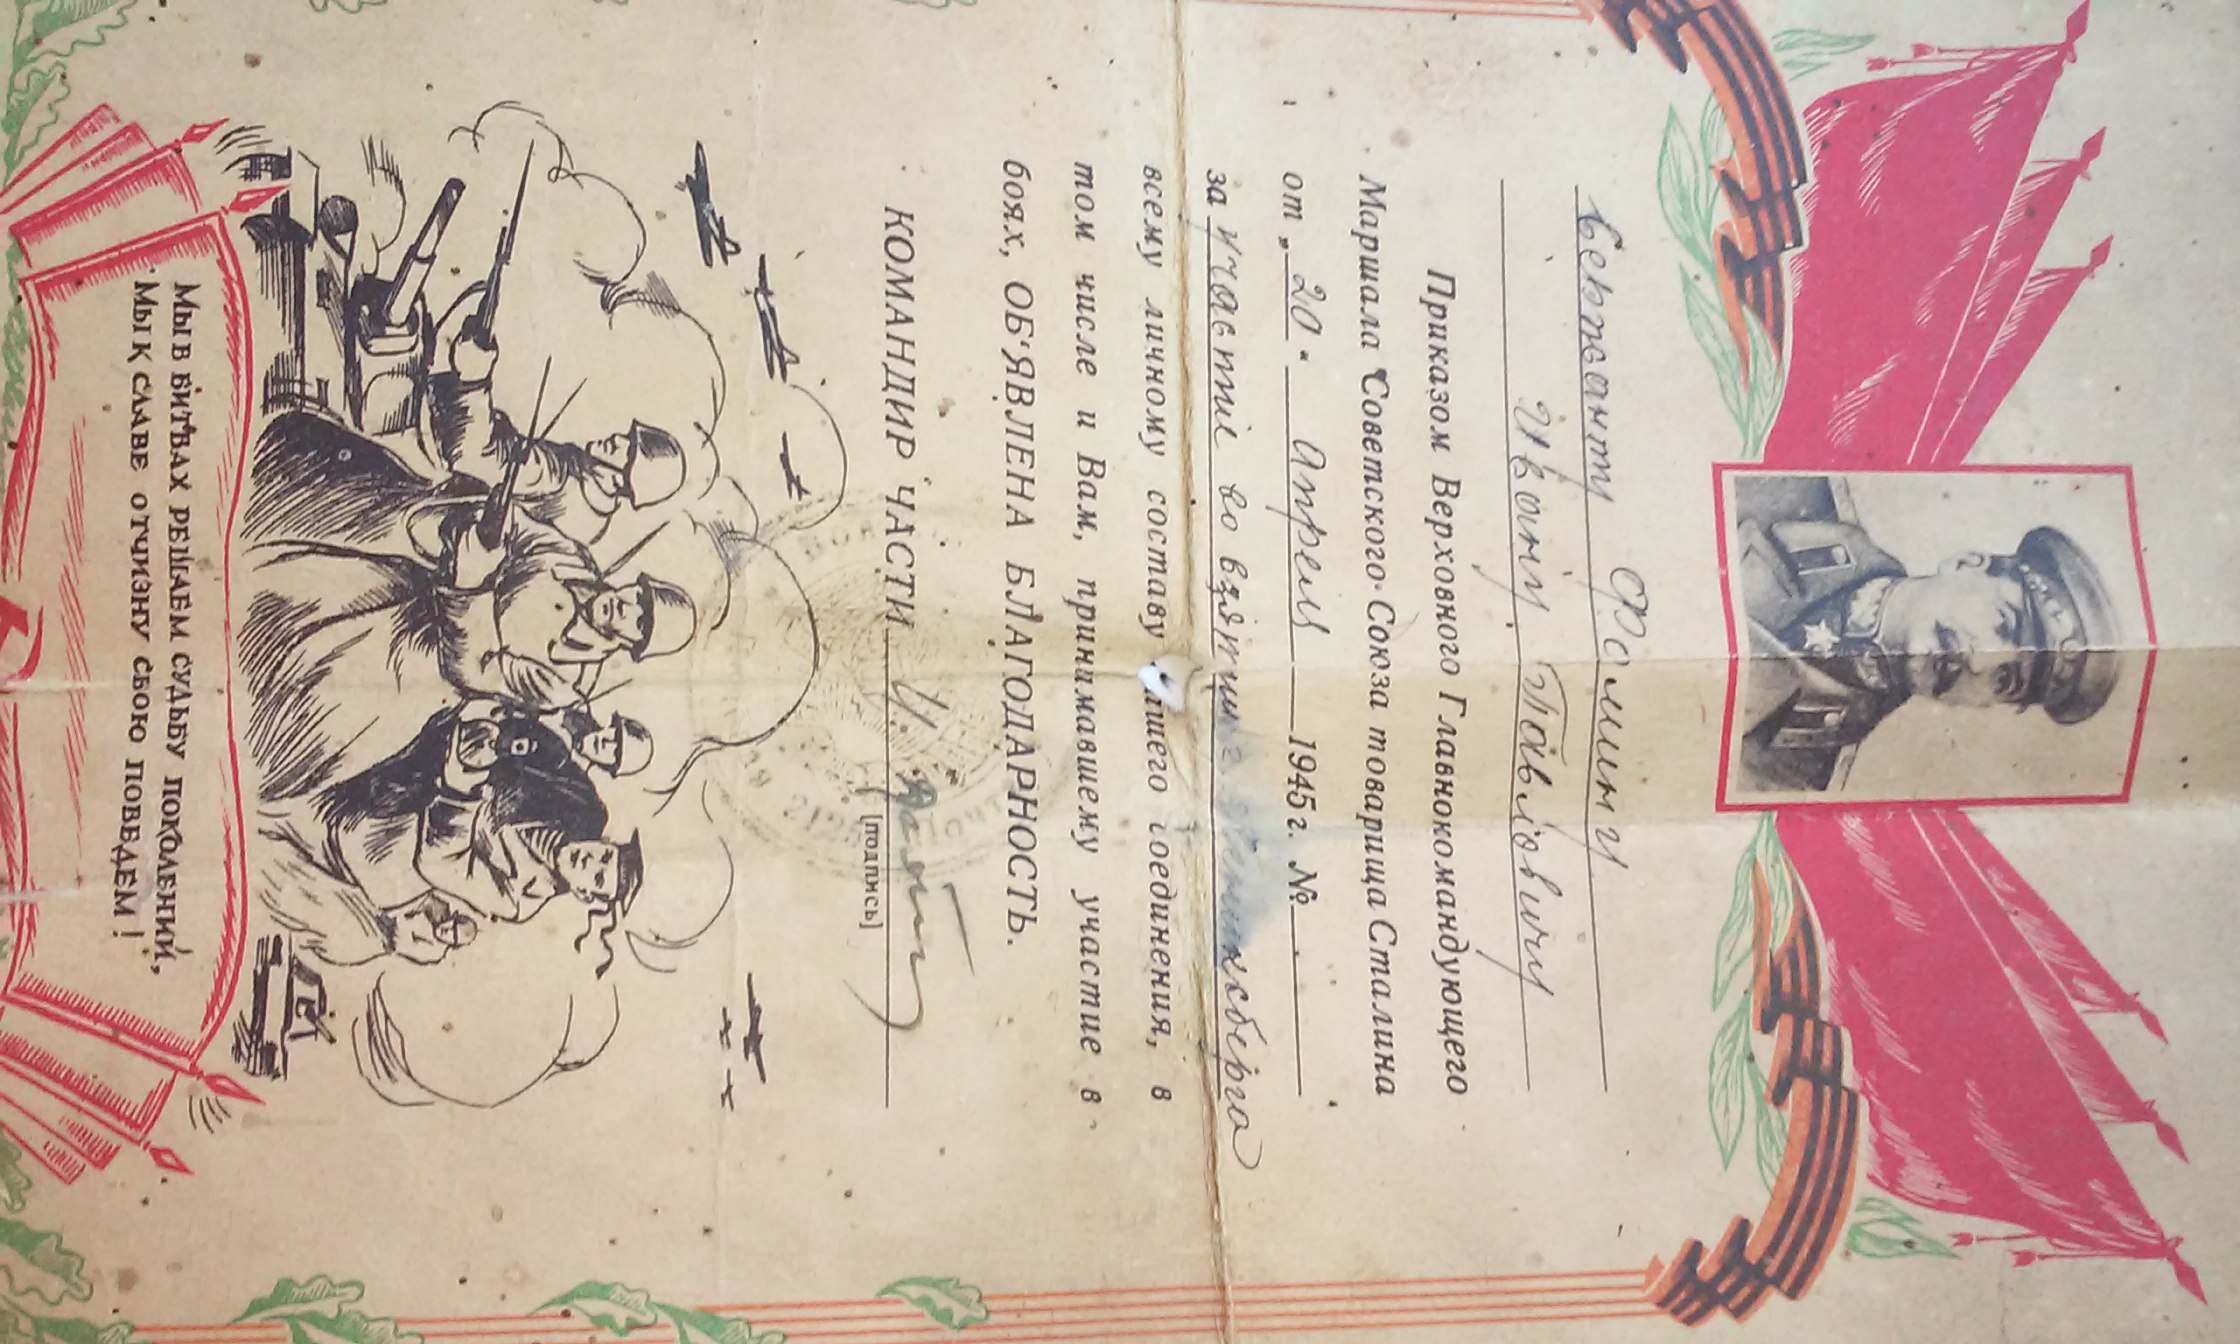 Сержанту Фомину
Ивану Павловичу
Приказом Верховного Главнокомандующего
Маршала Советского Союза товарища Сталина
от „20“ Апреля 1945 г. №
за участие во взятии
всему личному составу соединения, в
том числе и Вам, принимавшему участие в
боях, ОБ'ЯВЛЕНА БЛАГОДАРНОСТЬ.
КОМАНДИР ЧАСТИ
[подпись]
МЫ В БИТВАХ РЕШАЕМ СУДЬБУ ПОКОЛЕНИЙ,
МЫ К СЛАВЕ ОТЧИЗНУ СВОЮ ПОВЕДЕМ!